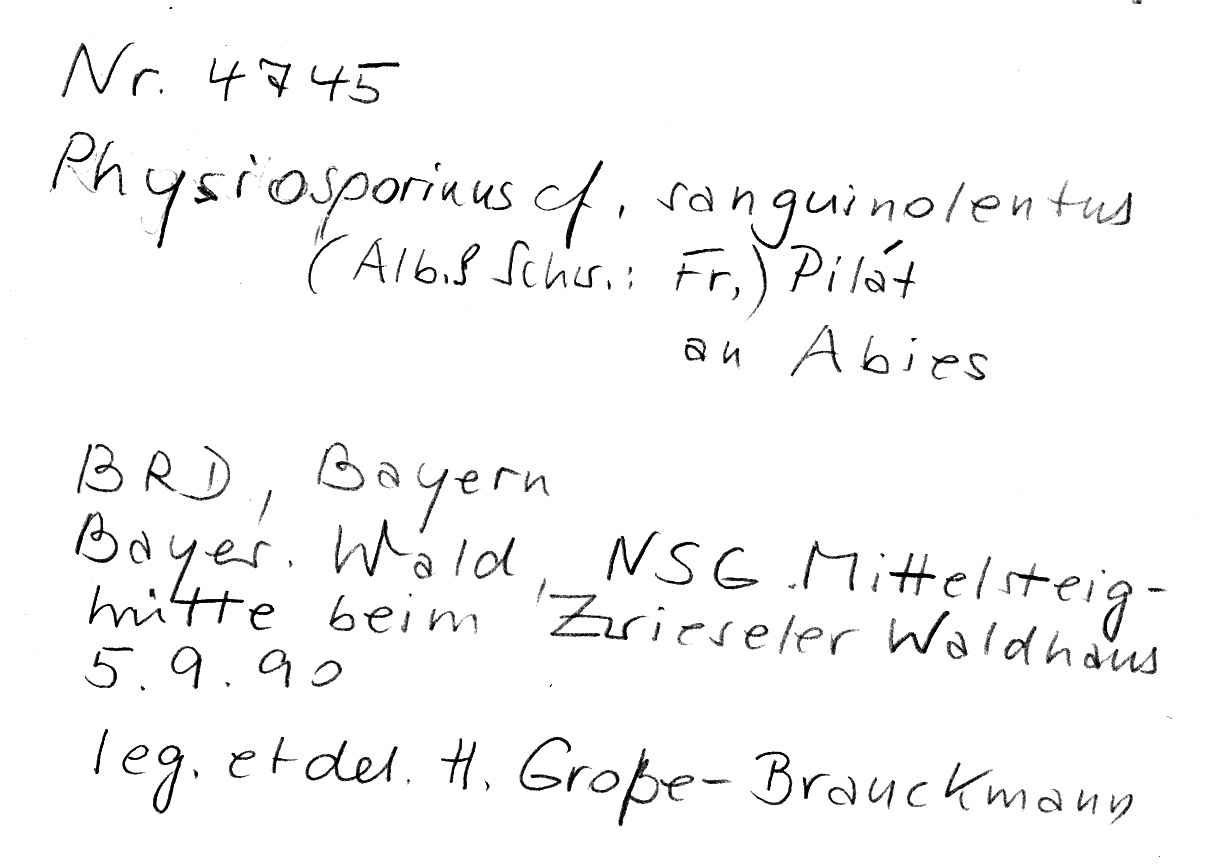 Nr. 4745
Physiosporinus cf. sanguinolentus
(Alb.& Schw.: Fr.) Pilát
an Abies
BRD, Bayern
Bayer. Wald, NSG Mittelsteig-
hütte beim Zwieseler Waldhaus
5.9.90
leg. et det. H. Große-Brauckmann